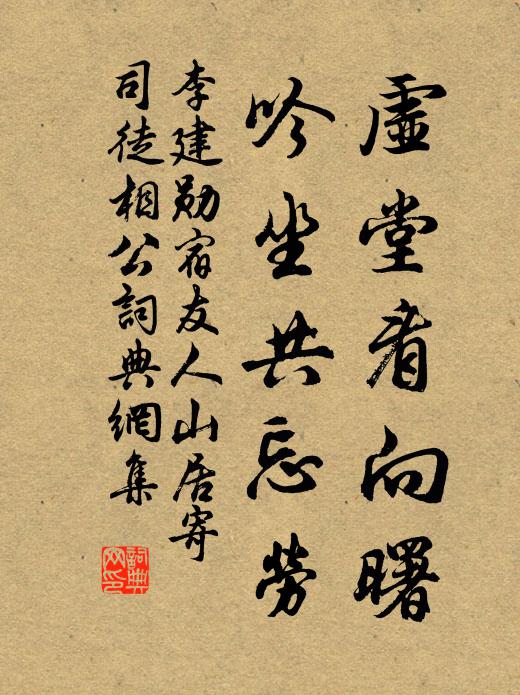 虛堂看向曙
吟坐共忘勞
李建勋宿友人山居寄
司徒相公詞典網集
詞典網印